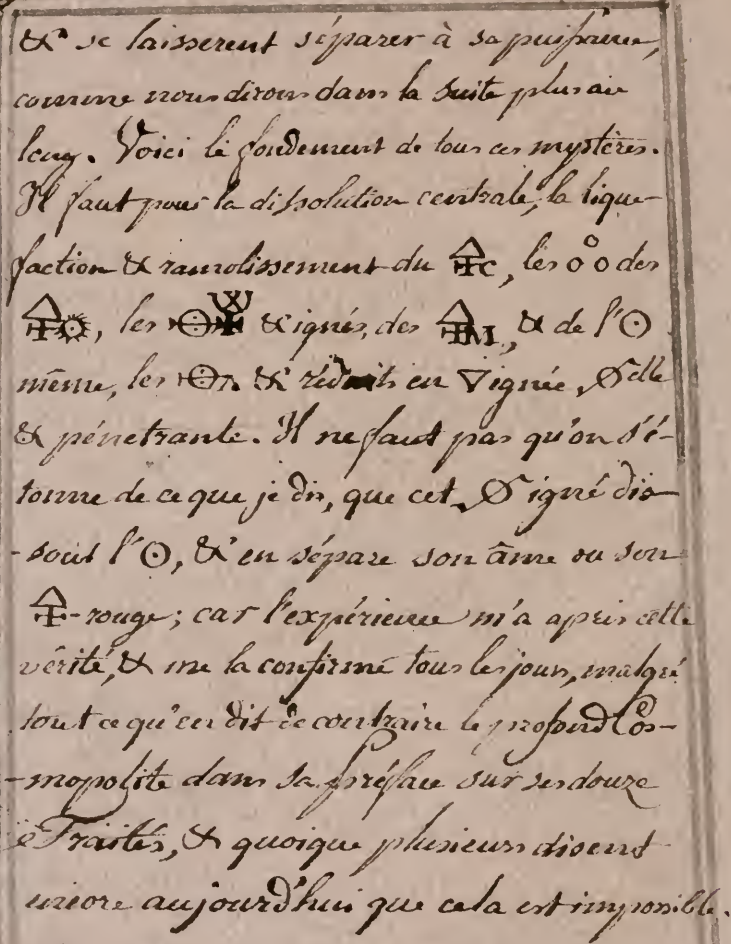 & se laisserent séparer à sa puissance,
comme nous dirons dans la suite plus au
long. Voici le fondement de tous ces mystères.
Il faut pour la dissolution centrale, la lique-
faction & ramolissement du 🜍C, les o°o des
🜍☼, les & ignés, des 🜍M, & de l'☉
même, les & réduits en 🜄 ignée, Selle
& pénetrante. Il ne faut pas qu'on s'é-
tonne de ce que je dis, que cet igné dis-
-sout l'☉, & en sépare son âme ou son
🜍 rouge; car l'expérience m'a apris cette
vérité, & me la confirme tous les jours, malgré
tout ce qu'en dit de contraire le profond Cos-
-mopolite dans sa préface sur ses douze
Traités, & quoique plusieurs disent
encore aujourd'hui que cela est impossible.